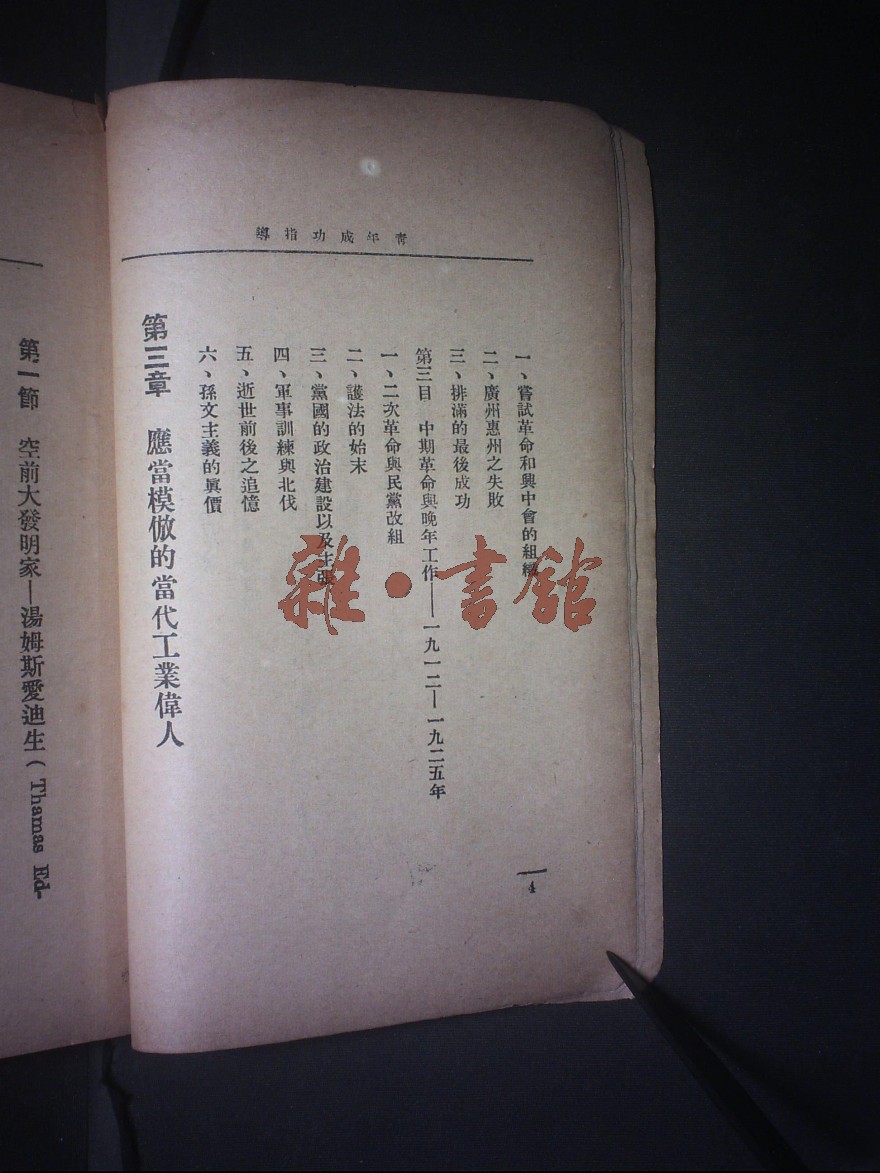 青年成功指導
一、嘗試革命和興中會的組織
二、廣州惠州之失敗
三、排滿的最後成功
第三目 中期革命與晚年工作——一九一二—一九二五年
一、二次革命與民黨改組
二、護法的始末
三、黨國的政治建設以及主張
四、軍事訓練與北伐
五、逝世前後之追憶
六、孫文主義的眞價
第三章 應當模倣的當代工業偉人
4
第一節 空前大發明家—湯姆斯愛迪生(Thamas Ed-
雜·書館